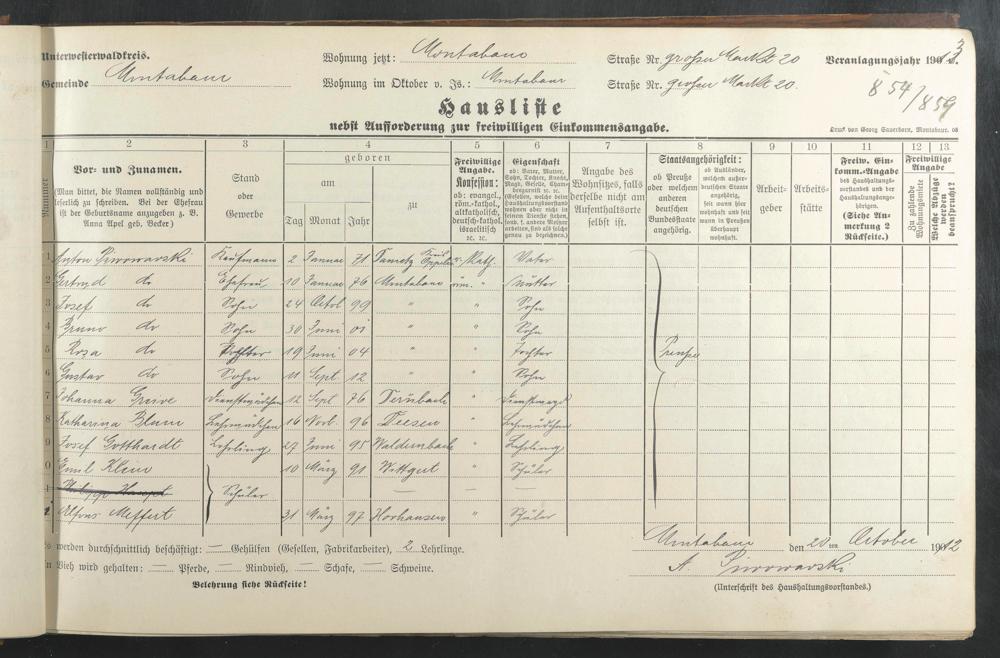 Unterwesterwaldkreis.
Wohnung jetzt: Montabaur Straße Nr. großen Markt 20 Veranlagungsjahr 1913.
Gemeinde Montabaur
Wohnung im Oktober v. Js.: Montabaur Straße Nr. großen Markt 20.
854/859
Hausliste
nebst Aufforderung zur freiwilligen Einkommensangabe.
Druck von Georg Sauerborn, Montabaur. 08
1 2 3 4 5 6 7 8 9 10 11 12 13
Nummer
Vor- und Zunamen.
(Man bittet, die Namen vollständig und leserlich zu schreiben. Bei der Ehefrau ist der Geburtsname anzugeben z. B. Anna Apel geb. Becker)
Stand oder Gewerbe
geboren
am
Tag Monat Jahr
zu
Freiwillige Angabe.
Konfession:
ob: evangel., röm.-kathol., altkatholisch, deutsch-kathol. israelitisch ꝛc. ꝛc.
Eigenschaft
ob: Vater, Mutter, Sohn, Tochter, Knecht, Magd, Geselle,
Angabe des Wohnsitzes, falls derselbe nicht am Aufenthaltsorte selbst ist.
Staatsangehörigkeit:
ob Preuße oder welchem anderen deutschen Bundesstaate angehörig.
ob Ausländer, welchem außerdeutschen Staate angehörig, seit wann hier wohnhaft und seit wann in Preußen überhaupt wohnhaft.
Arbeitgeber
Arbeitsstätte
Freiw. Einkomm.-Angabe
des Haushaltungsvorstandes und der Haushaltungsangehörigen.
(Siehe Anmerkung 2 Rückseite.)
Freiwillige Angabe
Zu zahlende Wohnungsmiete
Welche Abzüge werden beansprucht?
1 Anton Piwowarski Kaufmann 2 Januar 71 Oppeln r. Kath. Vater
2 Gertrud do Ehefrau 10 Januar 76 Montabaur " Mutter
3 Josef do Sohn 24 Octob 99 " " Sohn
4 Bruno do Sohn 30 Juni 01 " " Sohn
5 Rosa do Tochter 19 Juni 04 " " Tochter Preuße
6 Gustav do Sohn 11 Sept 12 " " Sohn
7 Johanna Dienstmädchen 12 Sept 76 Dernbach " Dienstmagd
8 Katharina Blum Lehrmädchen 16 Novb. 96 Deesen " Lehrmädchen
9 Josef Gotthardt Lehrling 27 Juni 95 Waldernbach " Lehrling
0 Emil Klein 10 März 91 Wittgert " Schüler
Schüler — —
Alfons Meffert 31 März 97 Horhausen " Schüler
werden durchschnittlich beschäftigt: — Gehülfen (Gesellen, Fabrikarbeiter), 2 Lehrlinge.
Montabaur den 20ten October 1912
n Vieh wird gehalten: — Pferde, — Rindvieh, — Schafe, — Schweine.
A. Piwowarski
Belehrung siehe Rückseite!
(Unterschrift des Haushaltungsvorstandes.)